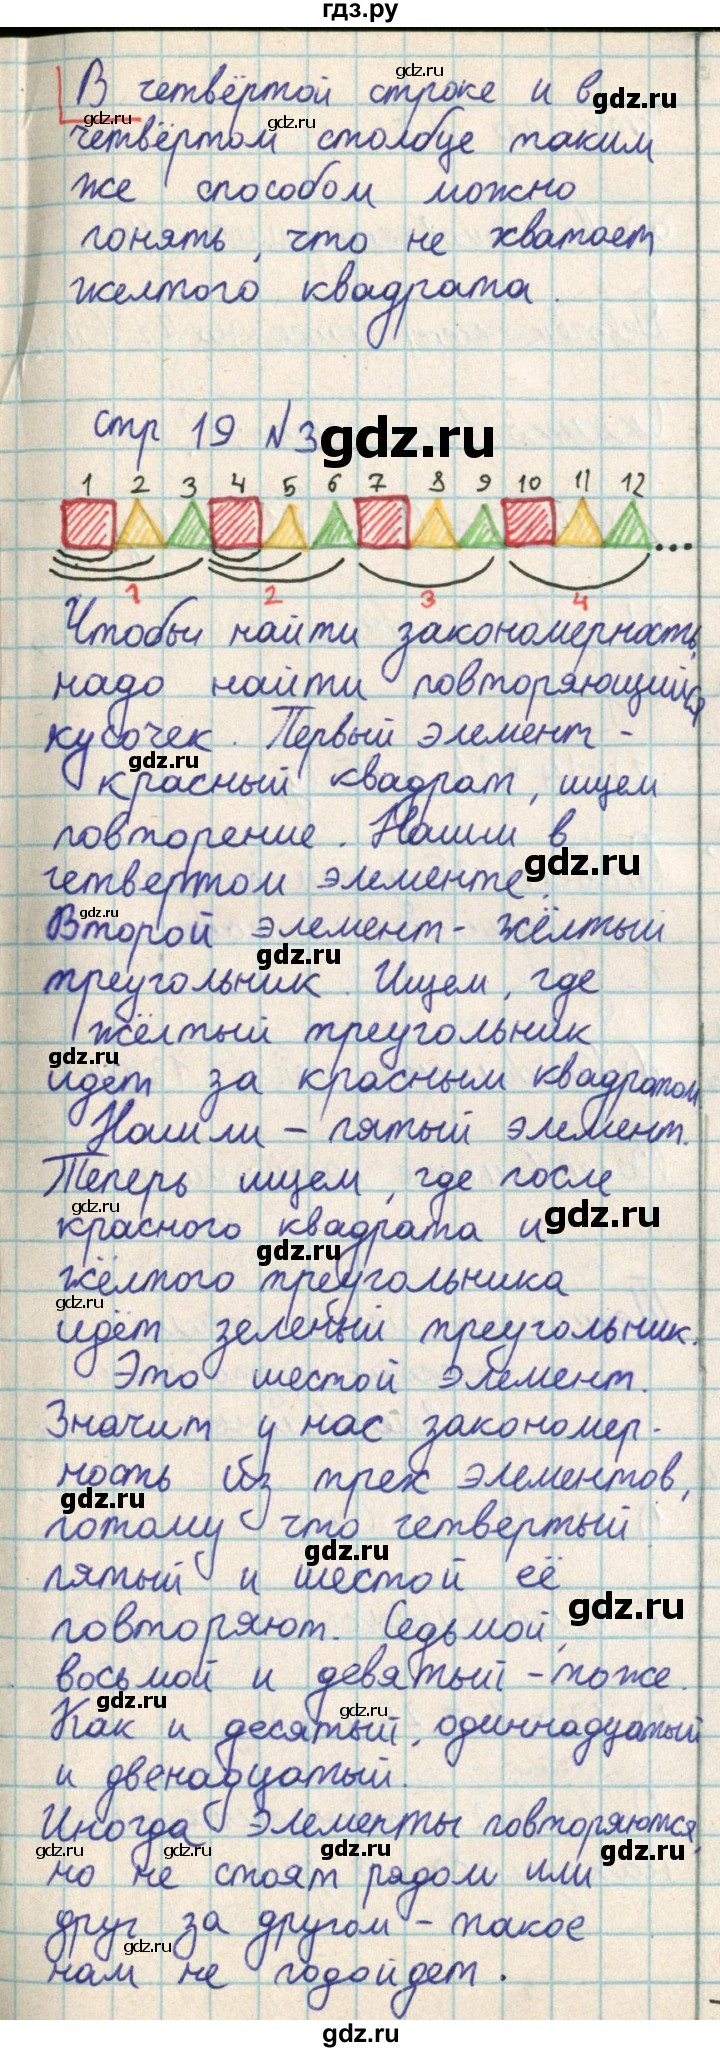 гдз.ру
В четвёртой строке и в
четвёртом столбце таким
же способом можно
понять, что не хватает
желтого квадрата.
стр 19 №3
1 2 3 4 5 6 7 8 9 10 11 12
...
1 2 3 4
Чтобы найти закономерность,
надо найти повторяющийся
кусочек. Первый элемент -
красный квадрат, ищем
повторение. Нашли в
четвертом элементе.
Второй элемент - жёлтый
треугольник. Ищем, где
жёлтый треугольник
идет за красным квадратом
Нашли - пятый элемент.
Теперь ищем, где после
красного квадрата и
жёлтого треугольника
идёт зеленый треугольник.
Это шестой элемент.
Значит у нас закономер-
ность из трех элементов,
потому что четвертый
пятый и шестой её
повторяют. Седьмой,
восьмой и девятый - тоже.
Как и десятый, одиннадцатый
и двенадцатый.
Иногда элементы повторяются,
но не стоят рядом или
друг за другом - такое
нам не подойдет.
gdz.ru